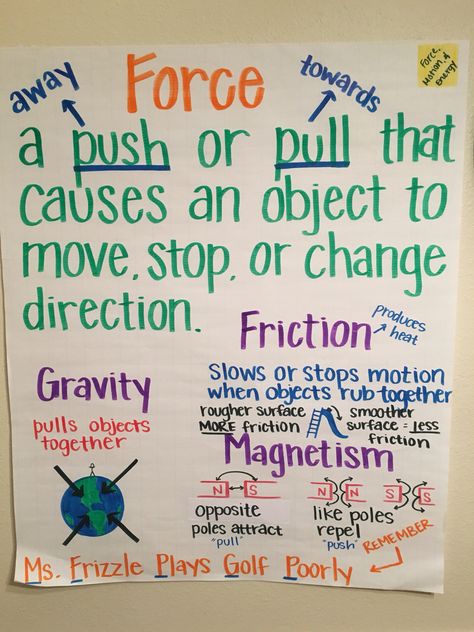 Force, Motion, & Energy
Force
away
towards
a push or pull that
causes an object to
move, stop, or change
direction.
Friction
produces heat
slows or stops motion
when objects rub together
rougher surface
MORE friction
smoother
surface = less
friction
Gravity
pulls objects
together
Magnetism
N S
opposite
poles attract
"pull"
N N S S
like poles
repel
"push"
REMEMBER
Ms. Frizzle Plays Golf Poorly